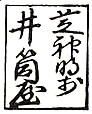 芝神明前
井筒屋